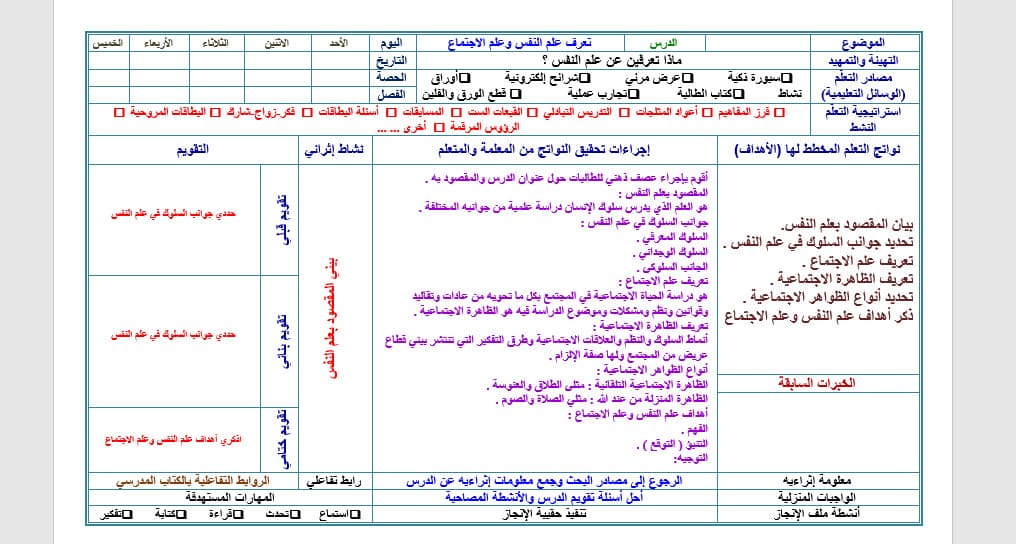 الموضوع الدرس تعرف علم النفس وعلم الاجتماع اليوم الأحد الاثنين الثلاثاء الأربعاء الخميس
التهيئة والتمهيد ماذا تعرفين عن علم النفس ؟ التاريخ
مصادر التعلم □سبورة ذكية □عرض مرئي □شرائح إلكترونية □أوراق الحصة
(الوسائل التعليمية) نشاط □كتاب الطالبة □تجارب عملية □ قطع الورق والفلين الفصل
استراتيجية التعلم □ فرز المفاهيم □ أعواد المثلجات □ التدريس التبادلي □ القبعات الست □ المسابقات □ أسئلة البطاقات □ فكر-زواج-شارك □ البطاقات المروحية □
النشط الرؤوس المرقمة □ أخرى ... ...
نواتج التعلم المخطط لها (الأهداف) إجراءات تحقيق النواتج من المعلمة والمتعلم نشاط إثرائي التقويم
بيان المقصود بعلم النفس.
تحديد جوانب السلوك في علم النفس .
تعريف علم الاجتماع .
تعريف الظاهرة الاجتماعية .
تحديد أنواع الظواهر الاجتماعية .
ذكر أهداف علم النفس وعلم الاجتماع
الخبرات السابقة
أقوم بإجراء عصف ذهني للطالبات حول عنوان الدرس والمقصود به .
المقصود بعلم النفس :
هو العلم الذي يدرس سلوك الإنسان دراسة علمية من جوانبه المختلفة .
جوانب السلوك في علم النفس :
السلوك المعرفي .
السلوك الوجداني .
الجانب السلوكي .
تعريف علم الاجتماع :
هو دراسة الحياة الاجتماعية في المجتمع بكل ما تحويه من عادات وتقاليد
وقوانين ونظم ومشكلات وموضوع الدراسة فيه هو الظاهرة الاجتماعية .
تعريف الظاهرة الاجتماعية :
أنماط السلوك والنظم والعلاقات الاجتماعية وطرق التفكير التي تنتشر بيني قطاع
عريض من المجتمع ولها صفة الإلزام .
أنواع الظواهر الاجتماعية :
الظاهرة الاجتماعية التلقائية : مثلى الطلاق والعنوسة .
الظاهرة المنزلة من عند الله : مثلي الصلاة والصوم .
أهداف علم النفس وعلم الاجتماع :
الفهم .
التنبؤ ( التوقع ) .
التوجيه:
بيني المقصود بعلم النفس
تقويم قبلي
حددي جوانب السلوك في علم النفس
تقويم بنائي
حددي جوانب السلوك في علم النفس
تقويم ختامي
اذكري أهداف علم النفس وعلم الاجتماع
معلومة إثراءيه الرجوع إلى مصادر البحث وجمع معلومات إثراءيه عن الدرس رابط تفاعلي الروابط التفاعلية بالكتاب المدرسي
الواجبات المنزلية أحل أسئلة تقويم الدرس والأنشطة المصاحبة المهارات المستهدفة
أنشطة ملف الإنجاز تنفيذ حقيبة الإنجاز □استماع □تحدث □قراءة □كتابة □تفكير